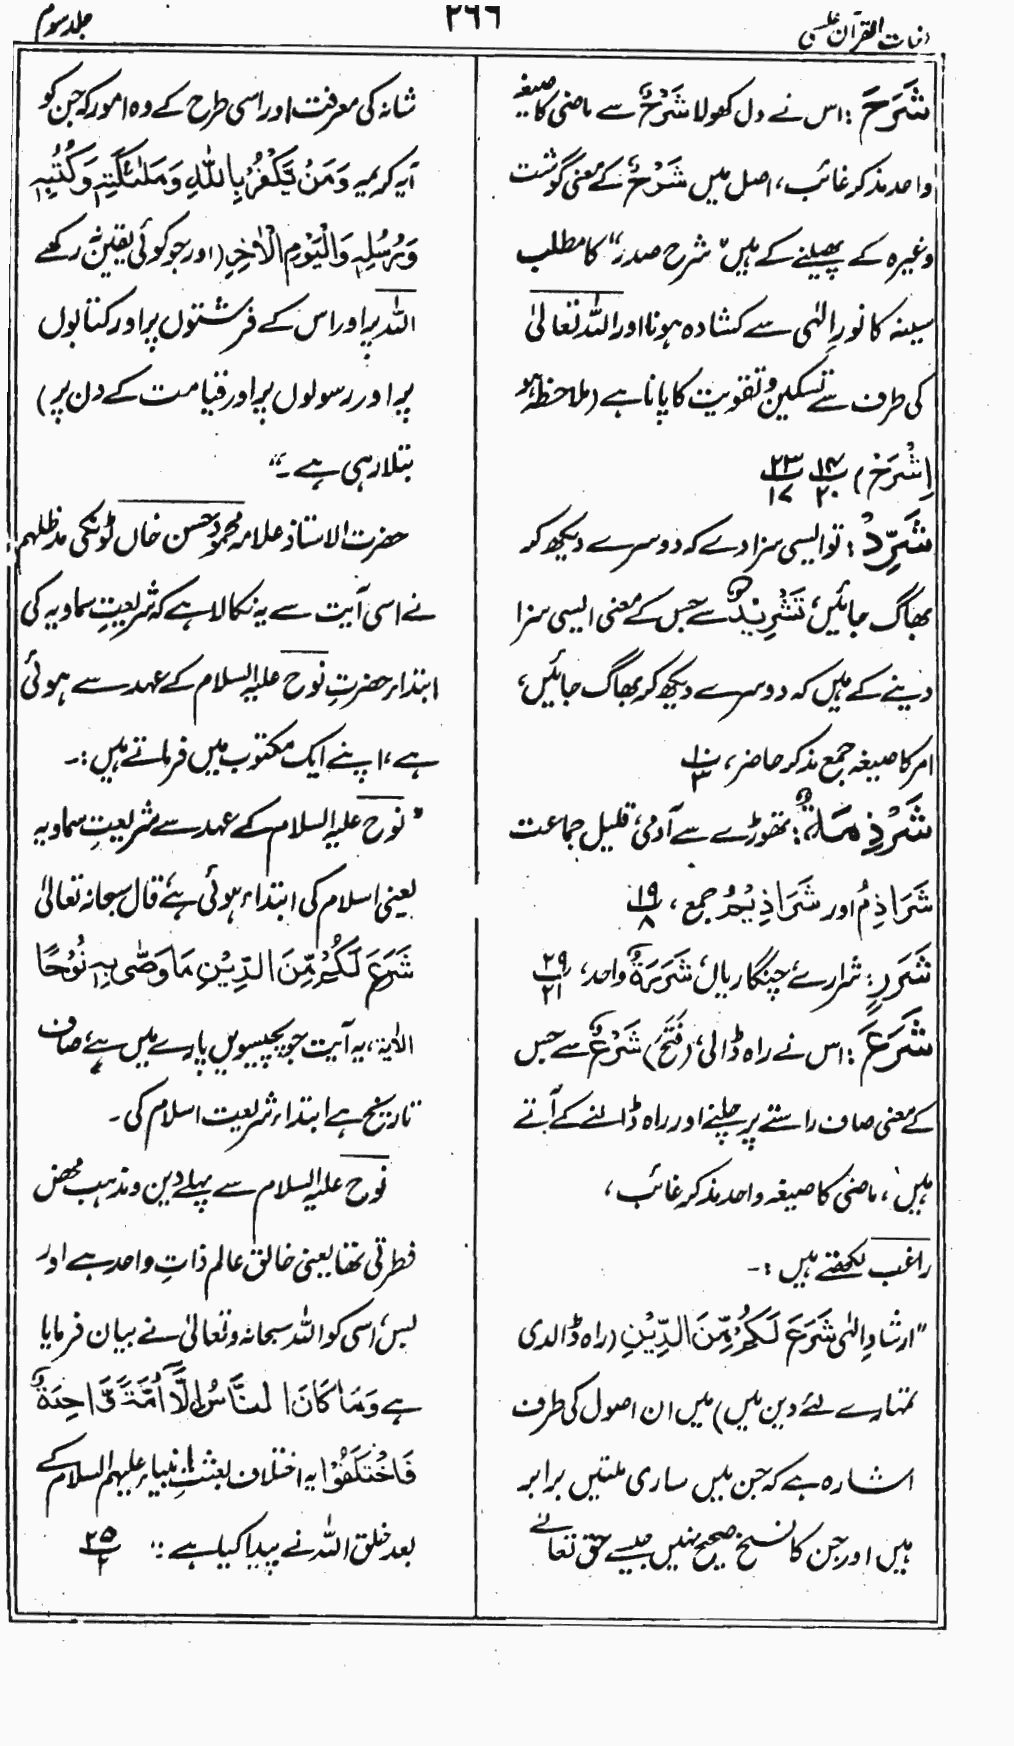 لغات القرآن
۲۶۶
جلد سوم
شَرَحَ: اس نے دل کھولا شَرْحٌ سے ماضی کا صیغہ
واحد مذکر غائب، اصل میں شَرْحٌ کے معنی گوشت
وغیرہ کے پھیلنے کے ہیں "شرح صدر" کا مطلب
سینہ کا نورِ الٰہی سے کشادہ ہونا اور اللہ تعالیٰ
کی طرف سے تسکین و تقویت کا پانا ہے (ملاحظہ ہو
اِشْرَحْ) ۱۴/۲۰ ۲۳/۱۷
شَرِّدْ: تو ایسی سزا دے کہ دوسرے دیکھ کر
بھاگ جائیں، تَشْرِيْدٌ سے جس کے معنی ایسی سزا
دینے کے ہیں کہ دوسرے دیکھ کر بھاگ جائیں،
امر کا صیغہ جمع مذکر حاضر، ۱۰/۳
شِرْذِمَةٌ: تھوڑے سے آدمی، قلیل جماعت
شَرَاذِمُ اور شَرَاذِيْمُ جمع، ۱۹/۸
شَرَرٍ: شرارے، چنگاریاں، شَرَرَةٌ واحد، ۲۹/۲۱
شَرَعَ: اس نے راہ ڈالی، (فَتَحَ) شَرْعٌ سے جس
کے معنی صاف راستے پر چلنے اور راہ ڈالنے کے آتے
ہیں، ماضی کا صیغہ واحد مذکر غائب،
راغب لکھتے ہیں :-
"ارشادِ الٰہی شَرَعَ لَكُمْ مِّنَ الدِّيْنِ (راہ ڈالدی
تمہارے لئے دین میں) میں ان اصول کی طرف
اشارہ ہے کہ جن میں ساری ملتیں برابر
ہیں اور جن کا نسخ صحیح نہیں جیسے حق تعالےٰ
شانہ کی معرفت اور اسی طرح کے وہ امور کہ جن کو
آیہ کریمہ وَمَنْ يَّكْفُرْ بِاللّٰهِ وَمَلٰٓئِكَتِهٖ وَكُتُبِهٖ
وَرُسُلِهٖ وَالْيَوْمِ الْاٰخِرِ (اور جو کوئی یقین نہ رکھے
اللہ پر اور اس کے فرشتوں پر اور کتابوں
پر اور رسولوں پر اور قیامت کے دن پر)
بتلا رہی ہے۔"
حضرت الاستاذ علامہ محمود حسن خاں ٹونکی مدظلہم
نے اسی آیت سے یہ نکالا ہے کہ شریعتِ سماویہ کی
ابتداء حضرتِ نوح علیہ السلام کے عہد سے ہوئی
ہے، اپنے ایک مکتوب میں فرماتے ہیں :-
"نوح علیہ السلام کے عہد سے شریعتِ سماویہ
یعنی اسلام کی ابتداء ہوئی ہے، قال سبحانہ تعالیٰ
شَرَعَ لَكُمْ مِّنَ الدِّيْنِ مَا وَصّٰى بِهٖ نُوْحًا
الآیۃ، یہ آیت جو پچیسویں پارے میں ہے، صاف
تاریخ ہے ابتداء شریعت اسلام کی۔
نوح علیہ السلام سے پہلے دین و مذہب محض
فطرتی تھا یعنی خالق عالم ذاتِ واحد ہے اور
بس، اسی کو اللہ سبحانہ وتعالیٰ نے بیان فرمایا
ہے وَمَا كَانَ النَّاسُ اِلَّا اُمَّةً وَّاحِدَةً
فَاخْتَلَفُوْا یہ اختلاف بعثتِ انبیاء علیہم السلام کے
بعد خلق اللہ نے پیدا کیا ہے :" ۲۵/۲